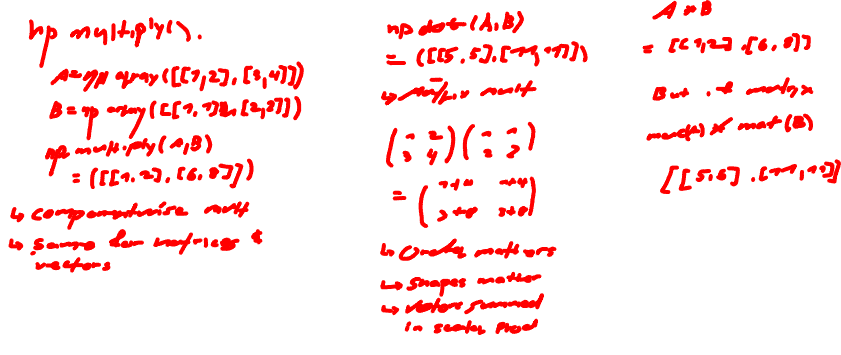 np multiply().
A = np array([[1,2],[3,4]])
B = np array([[1,1],[2,2]])
np multiply(A,B)
= ([[1,2],[6,8]])
↳ componentwise mult
↳ Same for matrices &
vectors
np dot(A,B)
= ([[5,5],[11,11]])
↳ Matrix mult
(1 2
3 4) (1 1
2 2)
= (1+4 1+4
3+8 3+8)
↳ Order matters
↳ Shapes matter
↳ Vectors summed
in scalar prod
A * B
= [[1,2],[6,8]]
But if matrix
mat(A) * mat(B)
[[5,5],[11,11]]